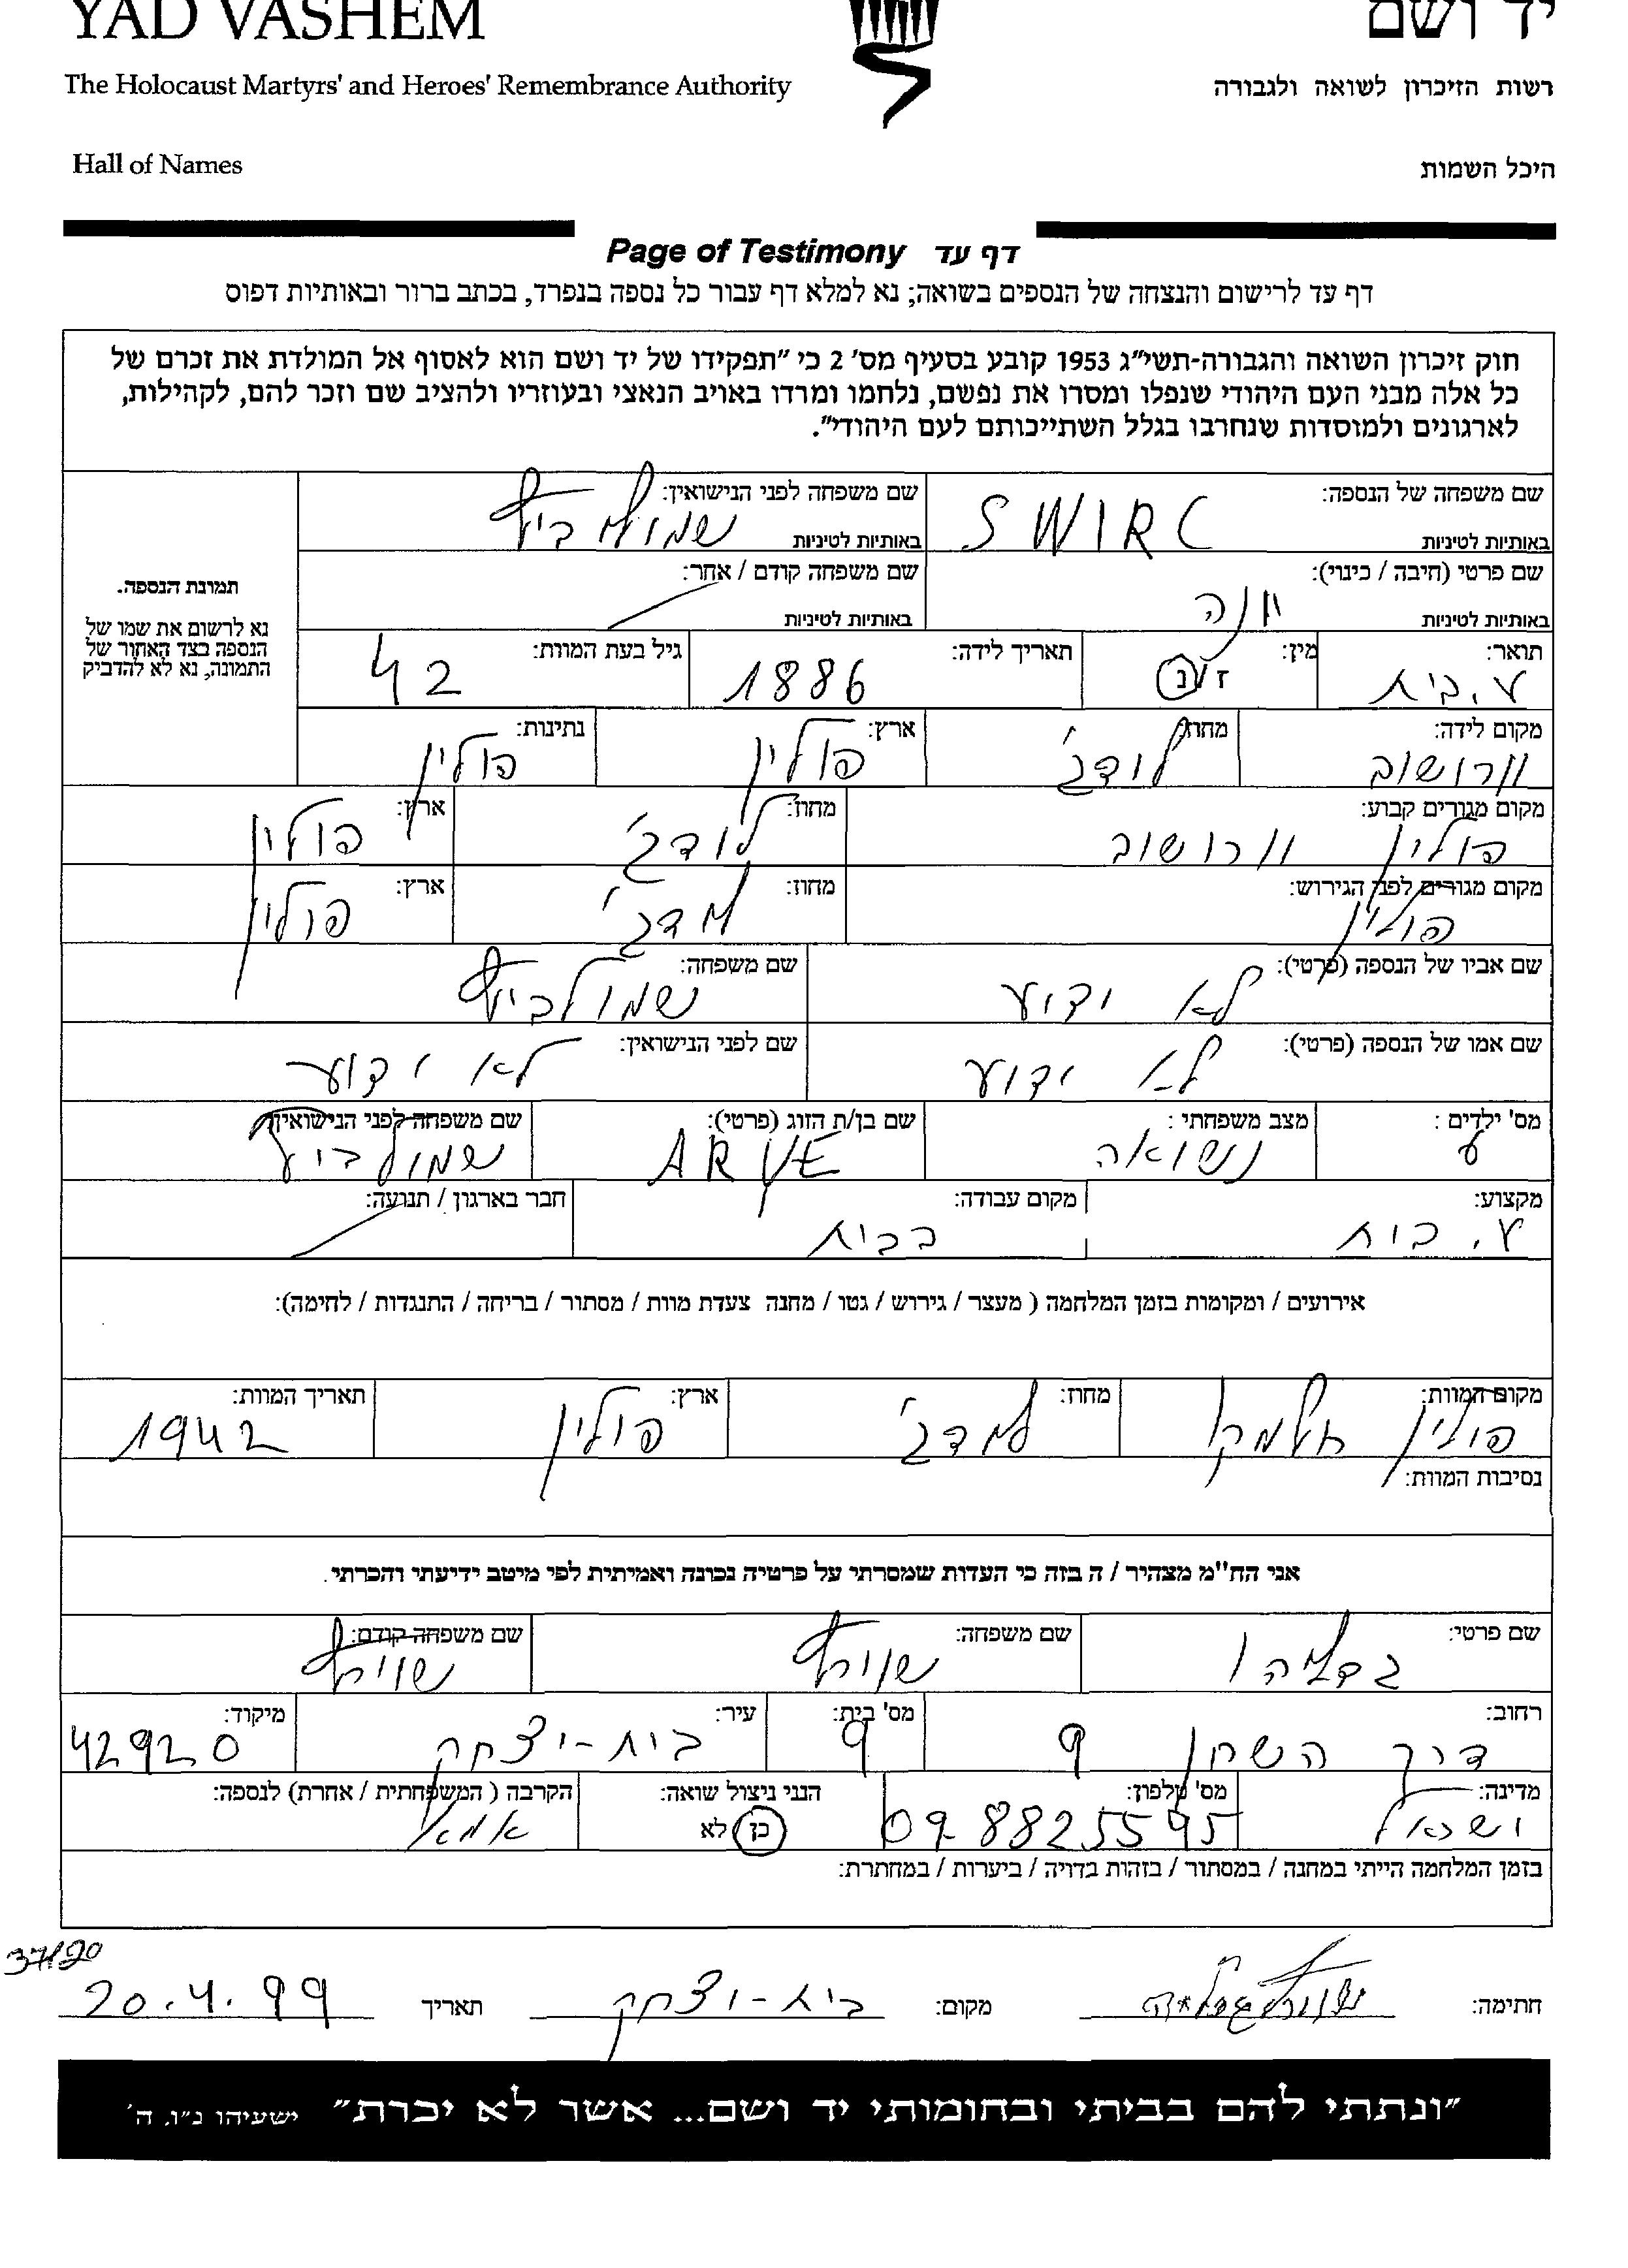 YAD VASHEM יד ושם
The Holocaust Martyrs' and Heroes' Remembrance Authority רשות הזיכרון לשואה ולגבורה
Hall of Names היכל השמות
Page of Testimony דף עד
דף עד לרישום והנצחה של הנספים בשואה; נא למלא דף עבור כל נספה בנפרד, בכתב ברור ובאותיות דפוס
חוק זיכרון השואה והגבורה-תשי״ג 1953 קובע בסעיף מס' 2 כי ״תפקידו של יד ושם הוא לאסוף אל המולדת את זכרם של
כל אלה מבני העם היהודי שנפלו ומסרו את נפשם, נלחמו ומרדו באויב הנאצי ובעוזריו ולהציב שם וזכר להם, לקהילות,
לארגונים ולמוסדות שנחרבו בגלל השתייכותם לעם היהודי״.
שם משפחה של הנספה: שם משפחה לפני הנישואין:
באותיות לטיניות SWIRC באותיות לטיניות שמולביץ
שם פרטי (חיבה / כינוי): שם משפחה קודם / אחר:
תמונת הנספה.
באותיות לטיניות באותיות לטיניות
נא לרשום את שמו של
הנספה בצד האחור של
התמונה, נא לא להדביק
תואר: מין: תאריך לידה: גיל בעת המוות:
ע.בית ז/נ 1886 42
מקום לידה: מחוז: ארץ: נתינות:
וורושוב לודג' פולין פולין
מקום מגורים קבוע: מחוז: ארץ:
פולין וורושוב לודג' פולין
מקום מגורים לפני הגירוש: מחוז: ארץ:
פולין לודג' פולין
שם אביו של הנספה (פרטי): שם משפחה:
לא ידוע שמולביץ
שם אמו של הנספה (פרטי): שם לפני הנישואין:
לא ידוע לא ידוע
מס' ילדים : מצב משפחתי : שם בן/ת הזוג (פרטי): שם משפחה לפני הנישואין:
נשואה ARYE שמולביץ
מקצוע: מקום עבודה: חבר בארגון / תנועה:
ע. בית בבית
אירועים / ומקומות בזמן המלחמה ( מעצר / גירוש / גטו / מחנה צעדת מוות / מסתור / בריחה / התנגדות / לחימה):
מקום המוות: מחוז: ארץ: תאריך המוות:
פולין לודג' פולין 1942
נסיבות המוות:
אני הח"מ מצהיר / ה בזה כי העדות שמסרתי על פרטיה נכונה ואמיתית לפי מיטב ידיעתי והכרתי.
שם פרטי: שם משפחה: שם משפחה קודם:
גדליהו שוירץ שוירץ
רחוב: מס' בית: עיר: מיקוד:
דרך השרון 9 9 בית-יצחק 42920
מדינה: מס' טלפון: הנני ניצול שואה: הקרבה ( המשפחתית / אחרת) לנספה:
ישראל 09-8825595 כן לא אמא
בזמן המלחמה הייתי במחנה / במסתור / בזהות בדויה / ביערות / במחתרת:
37/20
חתימה: מקום: בית-יצחק תאריך 20.4.99
״ונתתי להם בביתי ובחומותי יד ושם... אשר לא יכרת״ ישעיהו נ״ו, ה'